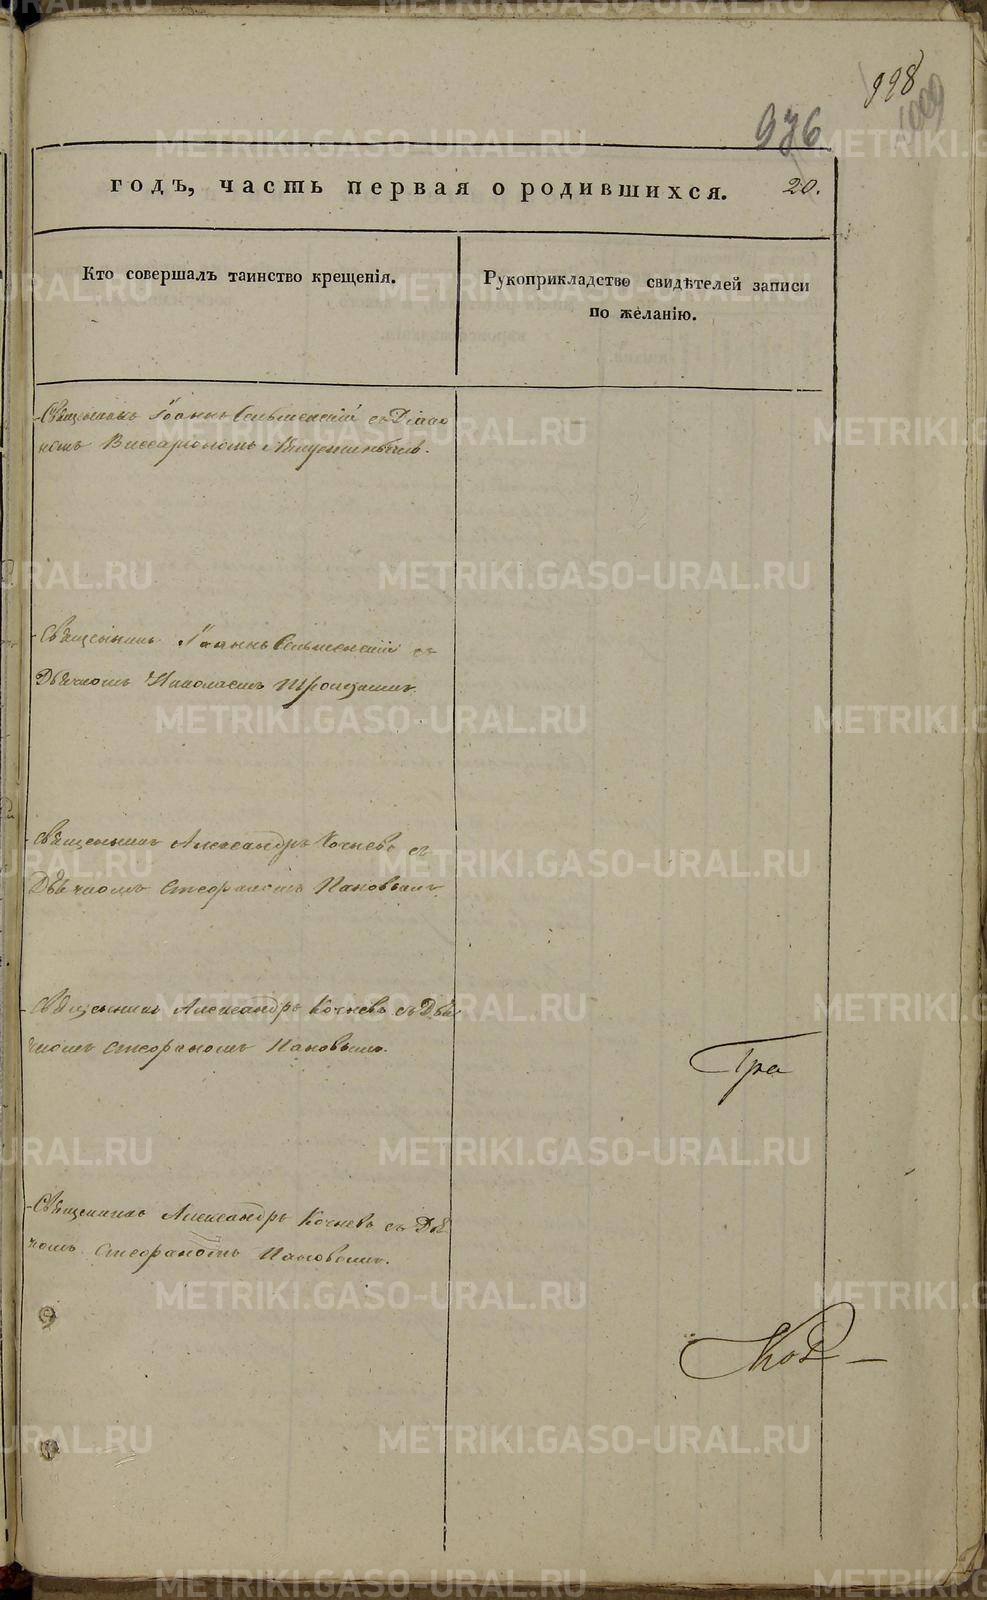 998
1009
936
годъ, часть первая о родившихся. 20.
Кто совершалъ таинство крещенія.
Рукоприкладство свидѣтелей записи
по желанію.
Священникъ Іоаннъ съ Діако
номъ Виссаріономъ
Священникъ Іоаннъ съ
Дьячкомъ Николаемъ
Священникъ Александръ Кочневъ съ
Дьячкомъ Стефаномъ Пановымъ
Священникъ Александръ Кочневъ съ Дья
чкомъ Стефаномъ Пановымъ.
Гра
Священникъ Александръ Кочневъ съ Дья
чкомъ Стефаномъ Пановымъ.
METRIKI.GASO-URAL.RU